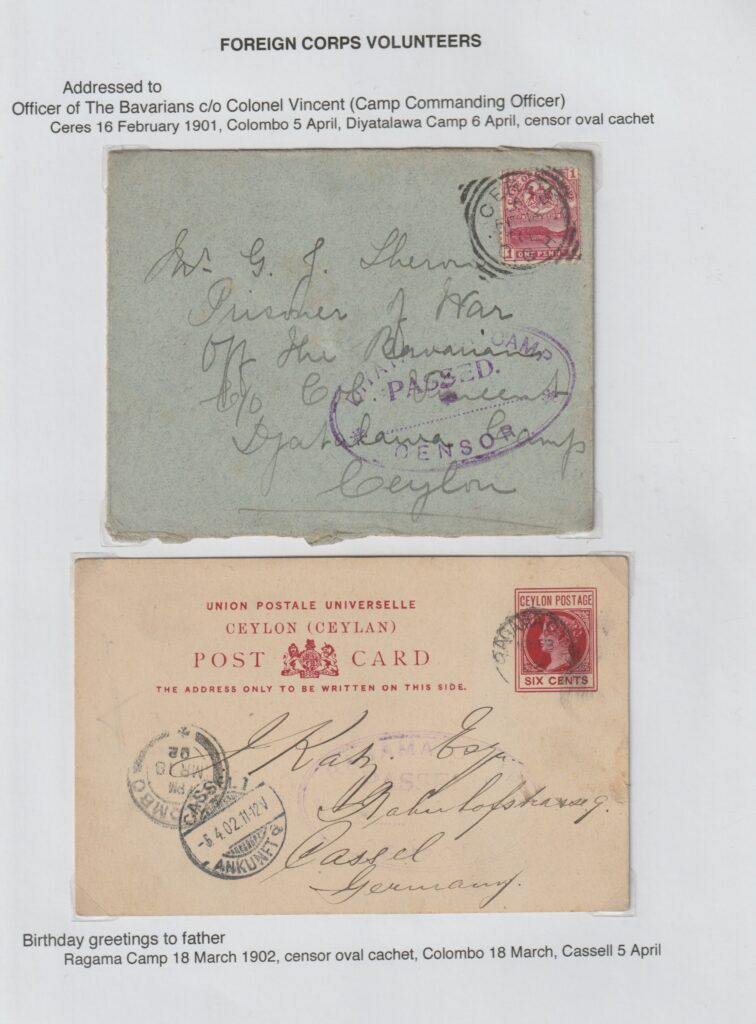 FOREIGN CORPS VOLUNTEERS
Addressed to
Officer of The Bavarians c/o Colonel Vincent (Camp Commanding Officer)
Ceres 16 February 1901, Colombo 5 April, Diyatalawa Camp 6 April, censor oval cachet
1
ONE PENNY
1
Mr. G. J. Theron
Prisoner of War
Off the Bavarians
C/o Col. Vincent
Djatalawa Camp
Ceylon
CAMP
PASSED.
CENSOR
UNION POSTALE UNIVERSELLE
CEYLON (CEYLAN)
POST CARD
THE ADDRESS ONLY TO BE WRITTEN ON THIS SIDE.
CEYLON POSTAGE
SIX CENTS
RAGAMA
J Katz Esq.
Bahnhofstrasse 9.
Cassel
Germany.
PM
MR 18
02
CASSEL 1
-5.4.02.11-12V
ANKUNFT
Birthday greetings to father
Ragama Camp 18 March 1902, censor oval cachet, Colombo 18 March, Cassell 5 April